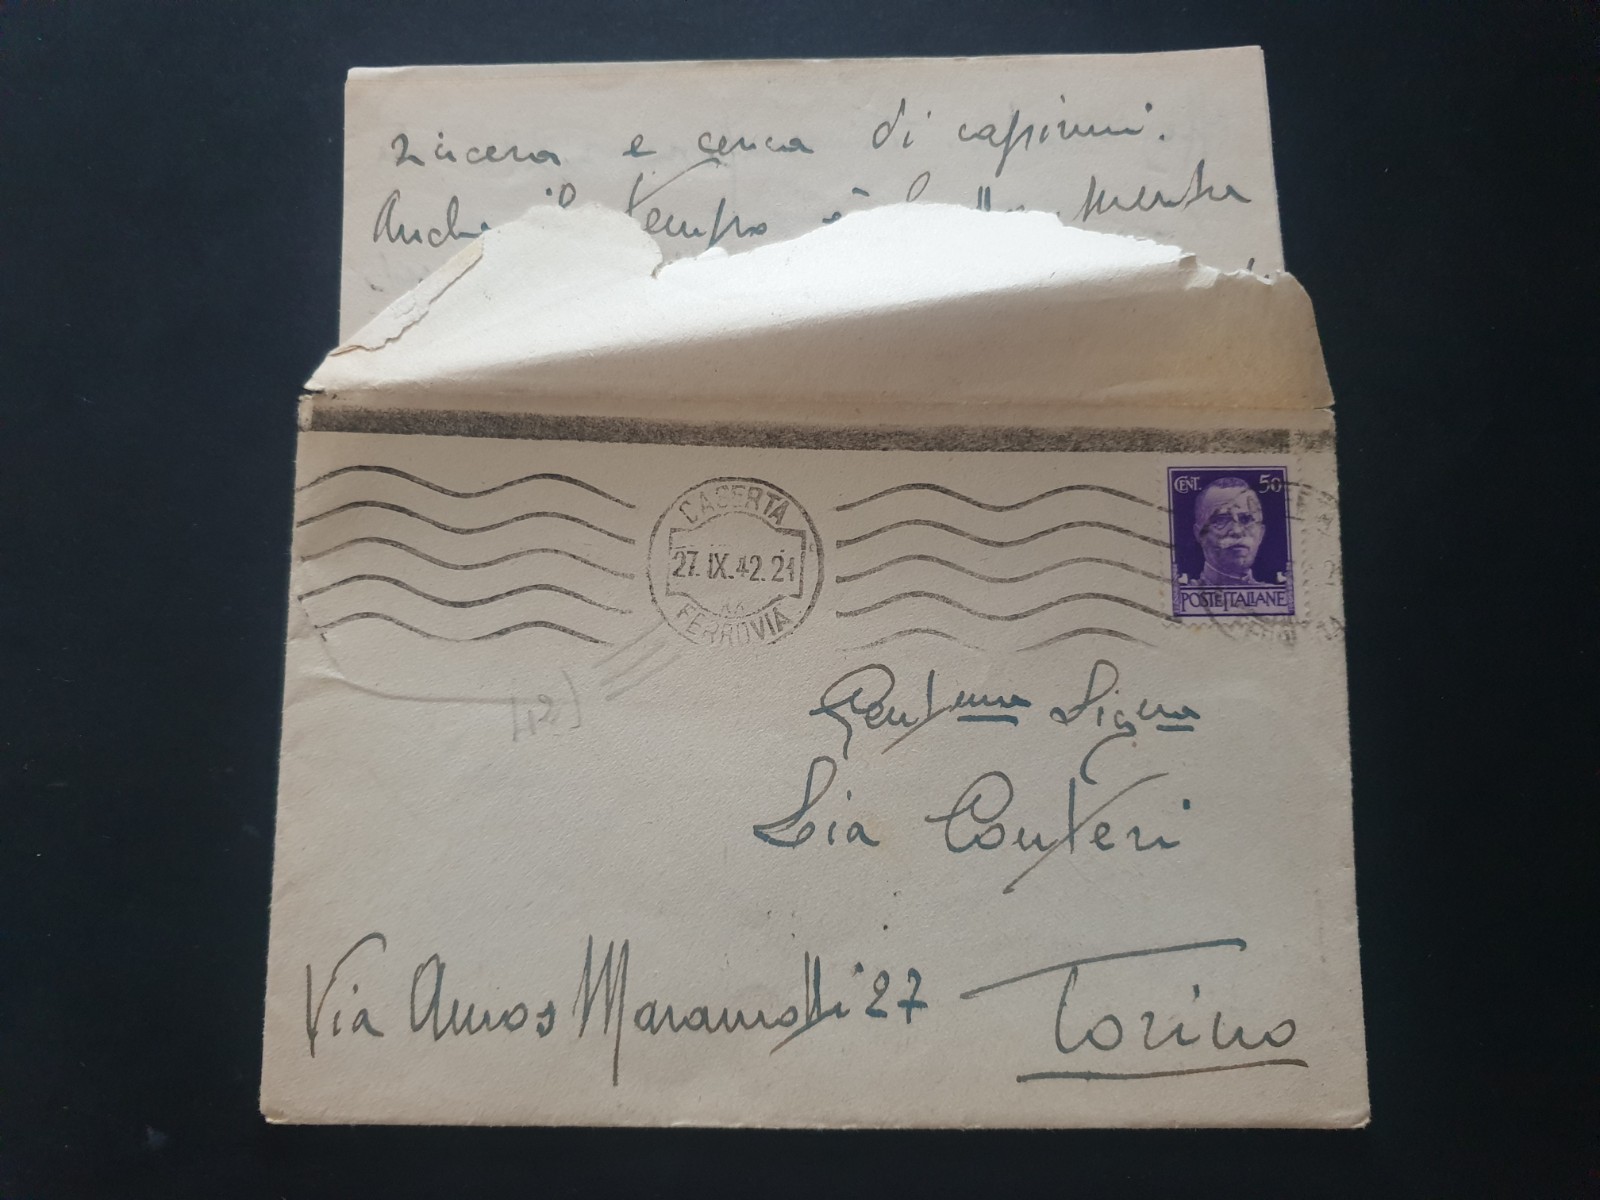 sincera e cerca di capirmi.
Anche il tempo è mentre
CASERTA
27.IX.42.21
FERROVIA
CENT. 50
POSTE ITALIANE
Gentma Signa
Lia Conteri
Via Amos Maramotti 27
Torino